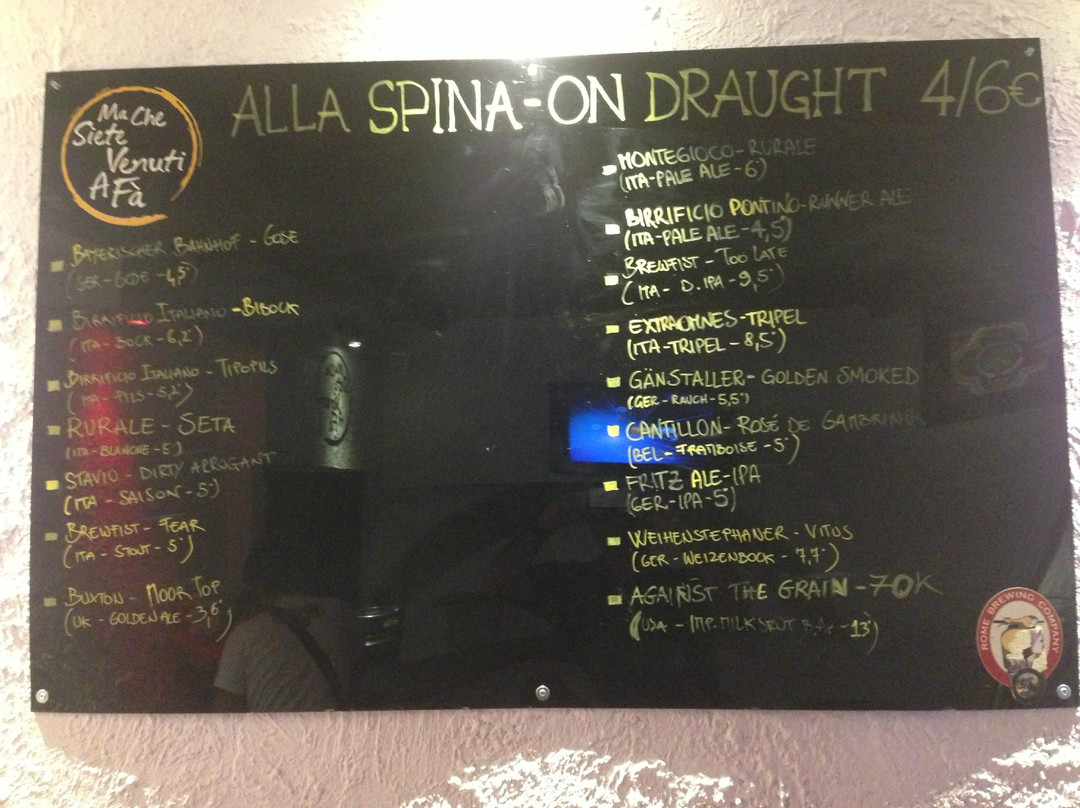 Ma Che
Siete
Venuti
A Fà
ALLA SPINA-ON DRAUGHT 4/6€
BAYERISCHER BAHNHOF - GOSE
(GER-GOSE-4,5°)
BIRRIFICIO ITALIANO - BIBOCK
(ITA-BOCK-6,2°)
BIRRIFICIO ITALIANO - TIPOPILS
(ITA-PILS-5,2°)
RURALE - SETA
(ITA-BLANCHE-5°)
STAVIO - DIRTY ARROGANT
(ITA-SAISON-5°)
BREWFIST - FEAR
(ITA-STOUT-5°)
BUXTON - MOOR TOP
(UK-GOLDEN ALE-3,6°)
MONTEGIOCO-RURALE
(ITA-PALE ALE-6°)
BIRRIFICIO PONTINO-RUNNER ALE
(ITA-PALE ALE-4,5)
BREWFIST - TOO LATE
(ITA - D.IPA - 9,5°)
EXTRAOMNES-TRIPEL
(ITA-TRIPEL-8,5°)
GÄNSTALLER-GOLDEN SMOKED
(GER-RAUCH-5,5°)
CANTILLON-ROSÉ DE GAMBRINUS
(BEL-FRAMBOISE-5°)
FRITZ ALE-IPA
(GER-IPA-5°)
WEIHENSTEPHANER - VITUS
(GER-WEIZENBOCK-7,7°)
AGAINST THE GRAIN-70K
(USA - IMP. MILK STOUT -13°)
ROME BREWING COMPANY